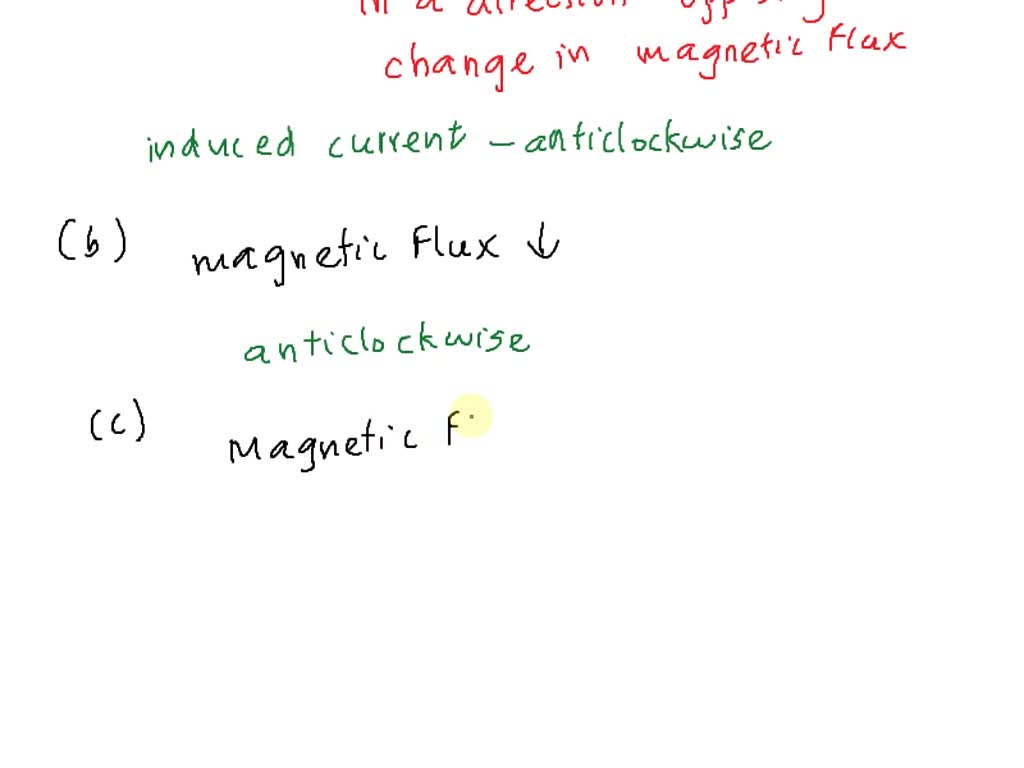 in a direction
change in magnetic flux
induced current - anticlockwise
(b) magnetic flux ↓
anticlockwise
(c) Magnetic F